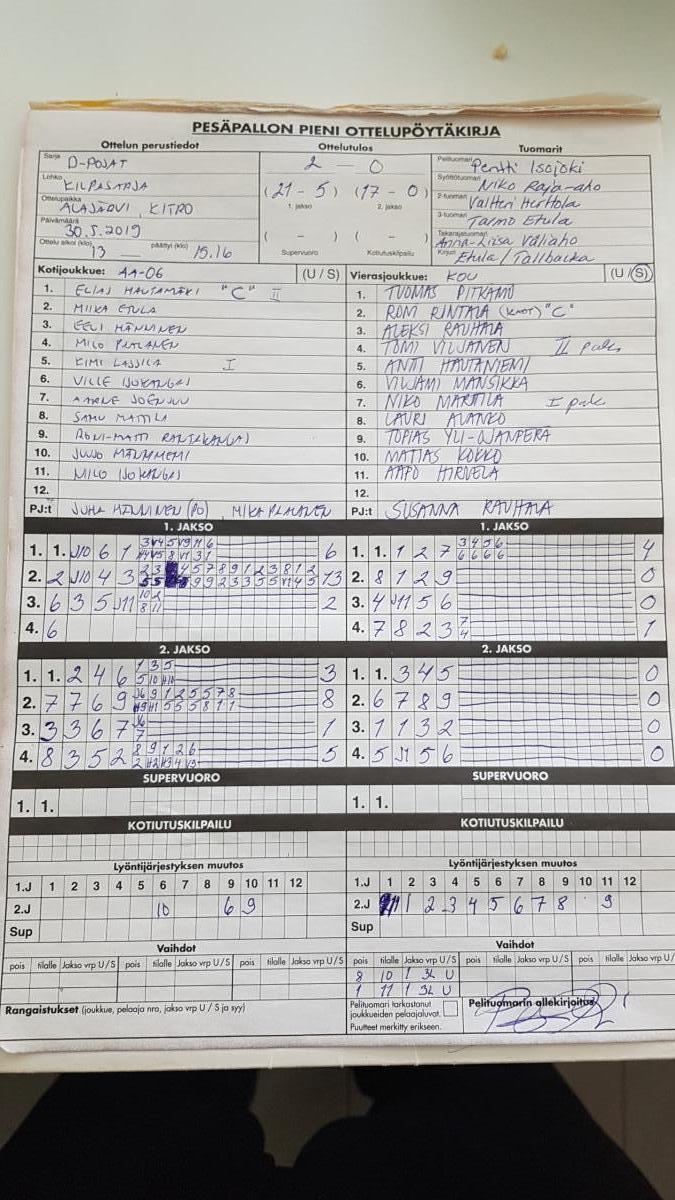 PESÄPALLON PIENI OTTELUPÖYTÄKIRJA
Ottelun perustiedot Ottelutulos Tuomarit
Sarja D-POJAT
Lohko KILPASARJA
Ottelupaikka ALAJÄRVI, KITRO
Päivämäärä 30.5.2019
Ottelu alkoi (klo) 13 päättyi (klo) 15.16
2 — 0
(21 - 5) (17 - 0)
1. jakso 2. jakso
( - ) ( - )
Supervuoro Kotiutuskilpailu
Pelituomari Pentti Isojoki
Syöttötuomari Niko Raja-aho
2-tuomari Valtteri Herttola
3-tuomari Tarmo Etula
Takarajatuomari Anna-Liisa Väliaho
Kirjuri Etula / Tallbacka
Kotijoukkue: AA-06 (U / S)
1. ELIAS HAUTAMÄKI "C" II
2. MIIKA ETULA
3. EELI HÄNNINEN
4. MILO
5. KIMI LASSILA I
6. VILLE IJOKANGAS
7.
8. SAMU MATTILA
9. RONI-MATTI
10. JUUJO
11. MILO IJOKANGAS
12.
PJ:t JUHA HÄNNINEN (PO), MIKA
Vierasjoukkue: KOU (U / S)
1. TUOMAS PITKÄMÖ
2. RONI RINTALA "C"
3. ALEKSI RAUHALA
4. TOMI VILJANEN II palk
5. ANTTI HAUTANIEMI
6. VILJAMI MANSIKKA
7. NIKO MARTTILA I palk
8. LAURI ALANKO
9. TOPIAS YLI-OJANPERÄ
10. MATIAS KOKKO
11. AAPO HIRVELÄ
12.
PJ:t SUSANNA RAUHALA
1. JAKSO
1. 1. J10 6 1 6
2. 2 J10 4 3 13
3. 6 3 5 J11 10 2 8 11 2
4. 6
1. JAKSO
1. 1. 1 2 7 3 4 5 6 6 6 6 6 4
2. 8 1 2 9 0
3. 4 J11 5 6 0
4. 7 8 2 3 7 4 1
2. JAKSO
1. 1. 2 4 6 1 3 5 3
2. 7 7 6 9 8
3. 3 3 6 7 1
4. 8 3 5 2 5
2. JAKSO
1. 1. 3 4 5 0
2. 6 7 8 9 0
3. 1 1 3 2 0
4. 5 J1 5 6 0
SUPERVUORO SUPERVUORO
1. 1. 1. 1.
KOTIUTUSKILPAILU KOTIUTUSKILPAILU
Lyöntijärjestyksen muutos
1.J 1 2 3 4 5 6 7 8 9 10 11 12
2.J 10 6 9
Sup
Lyöntijärjestyksen muutos
1.J 1 2 3 4 5 6 7 8 9 10 11 12
2.J 1 2 3 4 5 6 7 8 9
Sup
Vaihdot
pois tilalle Jakso vrp U / S pois tilalle Jakso vrp U / S pois tilalle Jakso vrp U / S
Vaihdot
pois tilalle Jakso vrp U / S pois tilalle Jakso vrp U / S pois tilalle Jakso vrp U / S
8 10 1 3L U
1 11 1 3L U
Rangaistukset (joukkue, pelaaja nro, jakso vrp U / S ja syy)
Pelituomari tarkastanut joukkueiden pelaajaluvat.
Puutteet merkitty erikseen.
Pelituomarin allekirjoitus